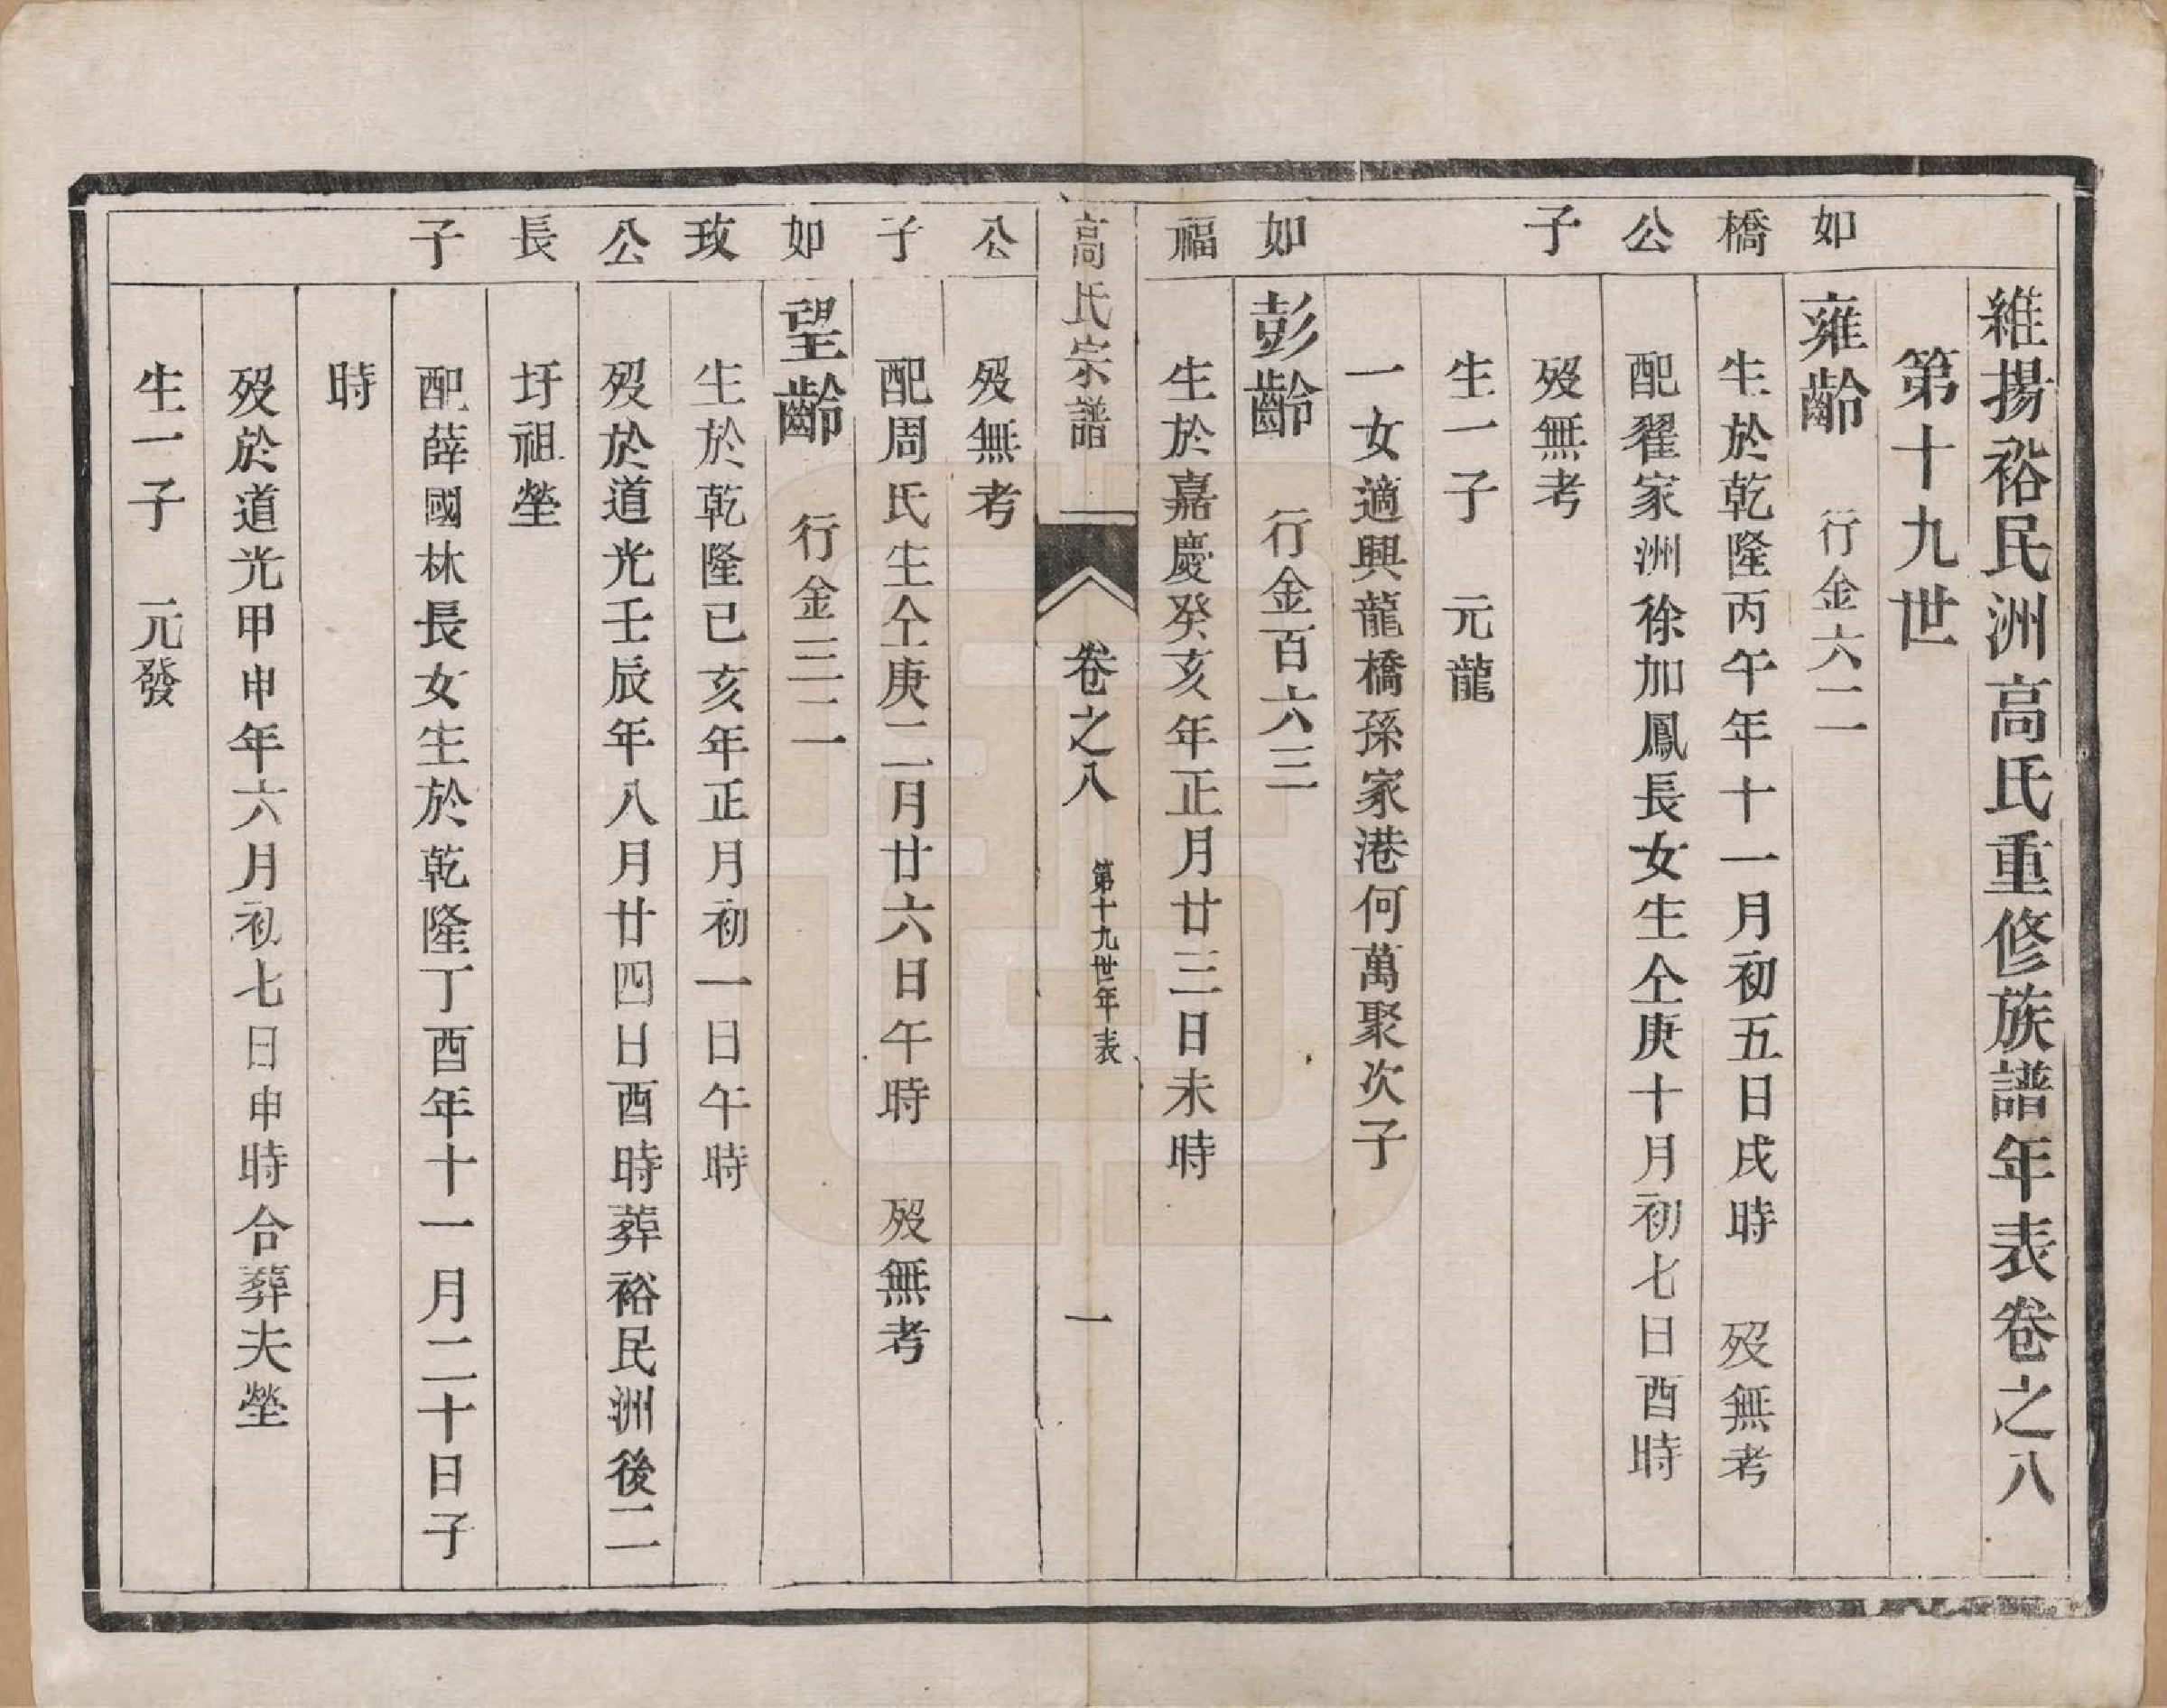 維揚裕民洲高氏重修族譜年表卷之八
第十九世
如橋公子
雍齡 行金六二
生於乾隆丙午年十一月初五日戌時 歿無考
配翟家洲徐加鳳長女生仝庚十月初七日酉時
歿無考
生一子 元龍
一女適興龍橋孫家港何萬聚次子
如福公子
彭齡 行金百六三
生於嘉慶癸亥年正月廿三日未時
高氏宗譜 卷之八 第十九世年表 一
歿無考
配周氏生仝庚二月廿六日午時 歿無考
如玫公長子
望齡 行金三二一
生於乾隆已亥年正月初一日午時
歿於道光壬辰年八月廿四日酉時葬裕民洲後二
圩祖塋
配薛國林長女生於乾隆丁酉年十一月二十日子
時
歿於道光甲申年六月初七日申時合葬夫塋
生一子 元發